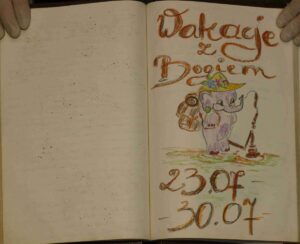 Wakacje
z
Bogiem
23.07-
-30.07-